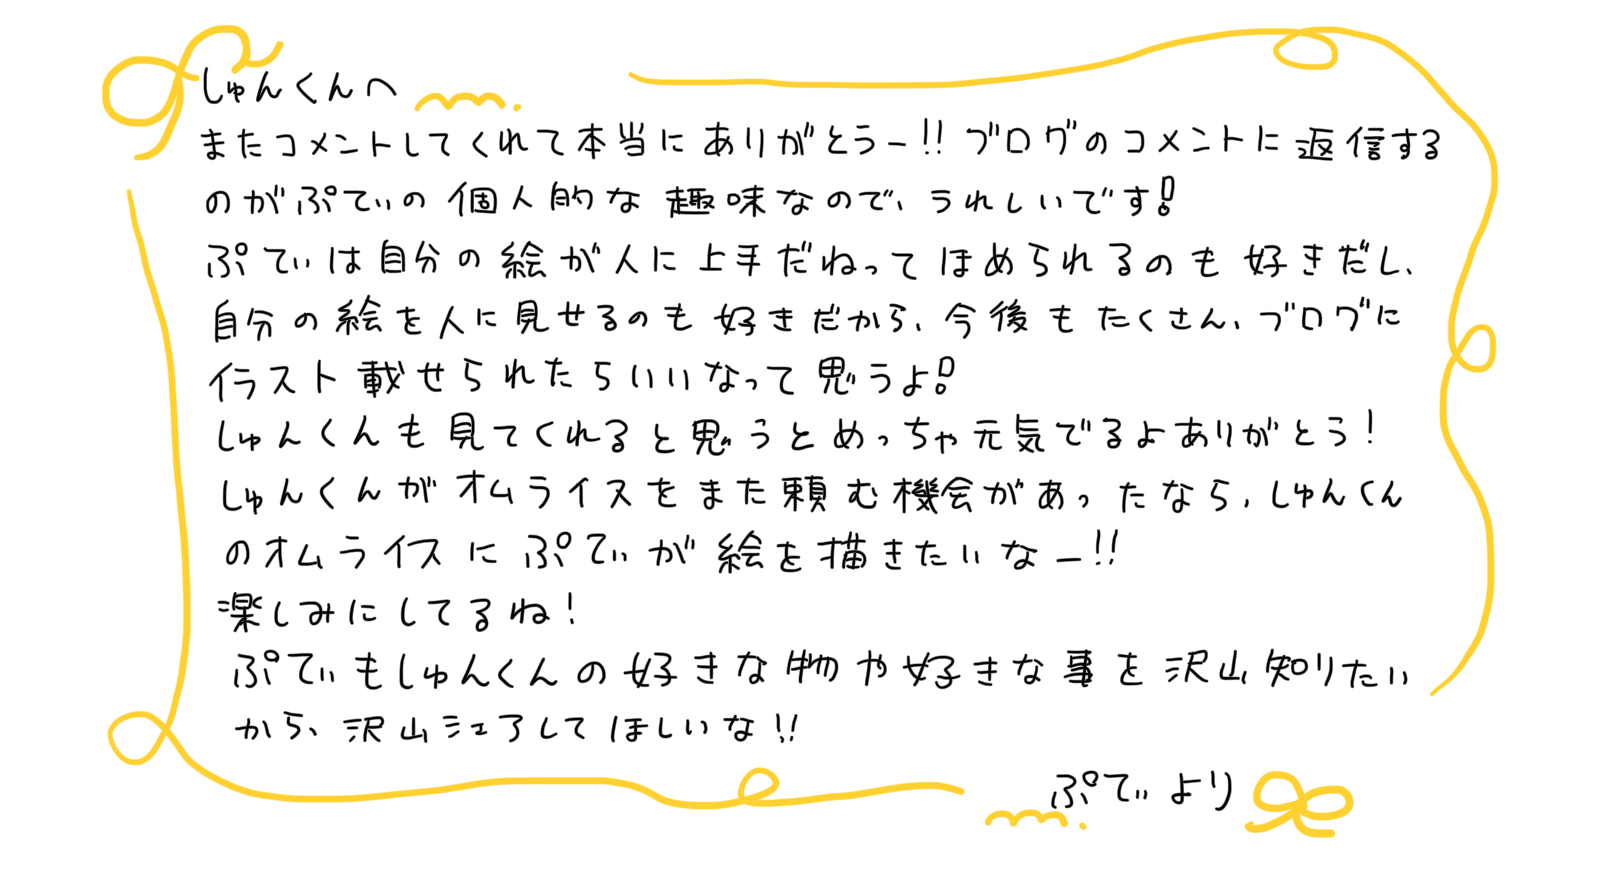 しゅんくんへ
またコメントしてくれて本当にありがとうー!! ブログのコメントに返信する
のがぷてぃの個人的な趣味なので、うれしいです!
ぷてぃは自分の絵が人に上手だねってほめられるのも好きだし、
自分の絵を人に見せるのも好きだから、今後もたくさん、ブログに
イラスト載せられたらいいなって思うよ!
しゅんくんも見てくれると思うとめっちゃ元気でるよありがとう!
しゅんくんがオムライスをまた頼む機会があったなら、しゅんくん
のオムライスにぷてぃが絵を描きたいなー!!
楽しみにしてるね!
ぷてぃもしゅんくんの好きな物や好きな事を沢山知りたい
から、沢山シェアしてほしいな!!
ぷてぃより